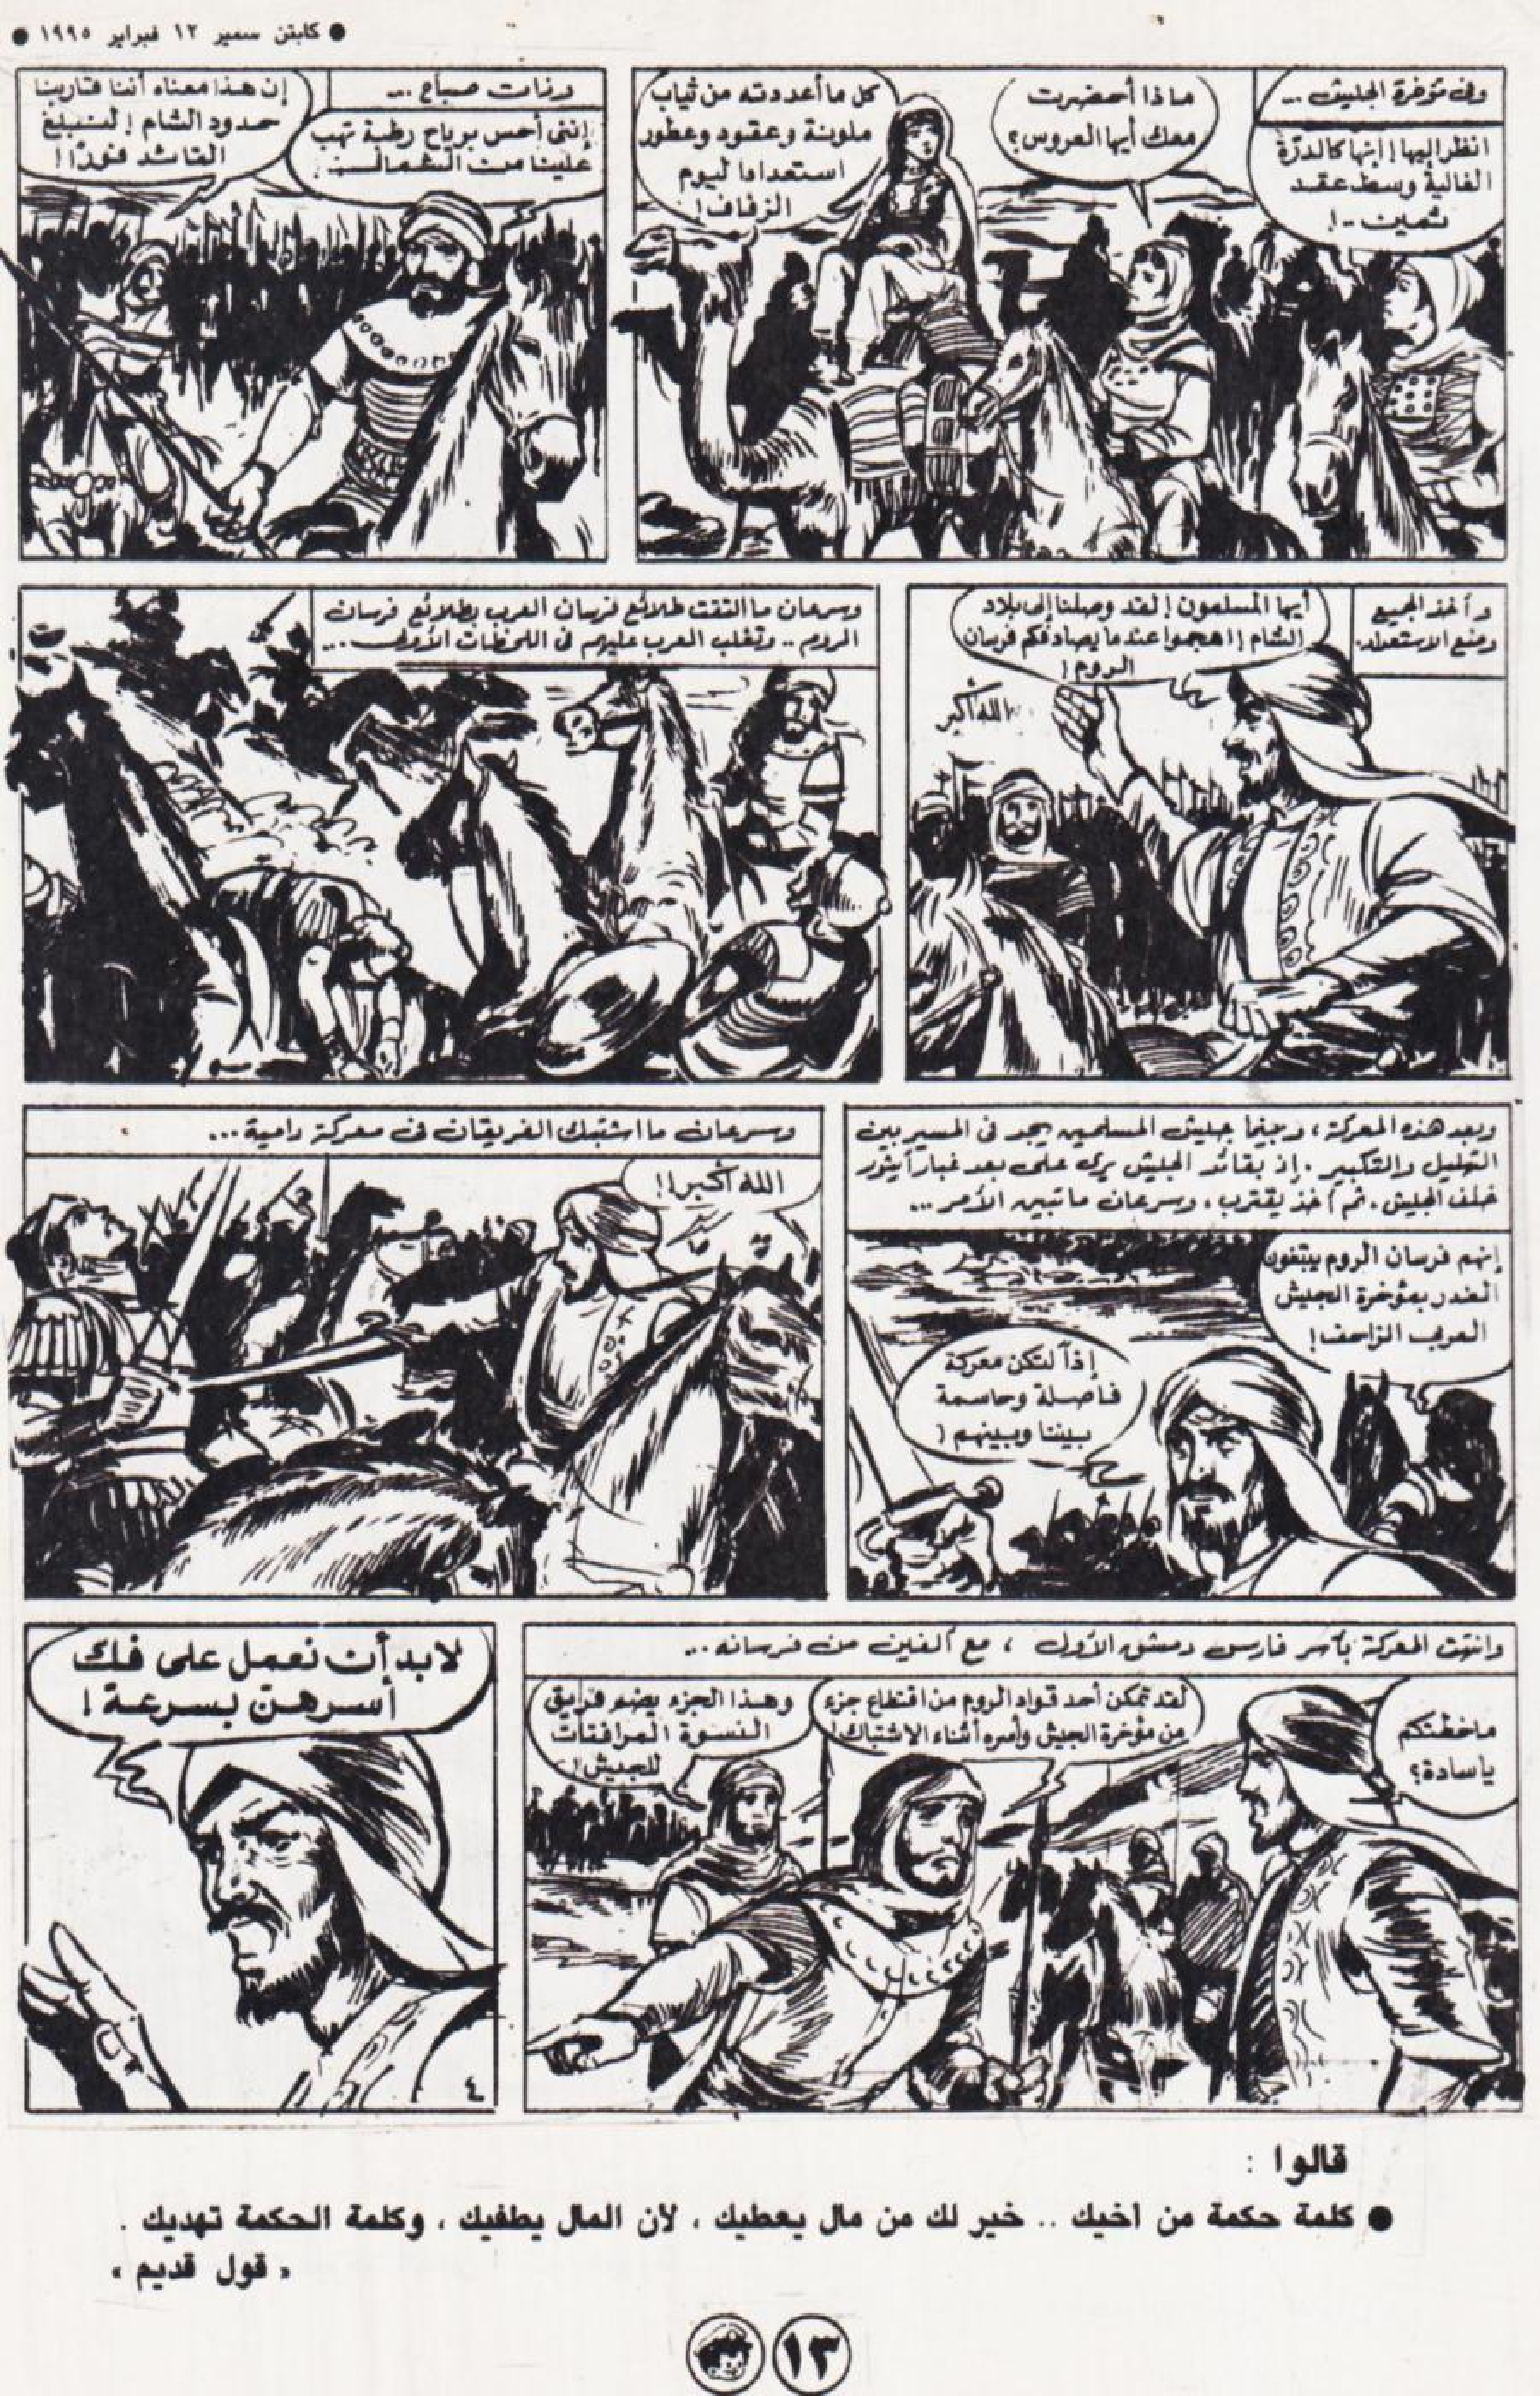 ● كابتن سمير ١٢ فبراير ١٩٩٥ ●
وفى مؤخرة الجيش ...
انظر إليها ! إنها كالدرّة
الغالية وسط عقد
ثمين ..!
ماذا أحضرت
معك أيها العروس؟
كل ما أعددته من ثياب
ملونة وعقود وعطور
استعدادا ليوم
الزفاف !
وذات صباح ...
إننى أحس برياح رطبة تهب
علينا من الشمال ..
إن هذا معناه أننا قاربنا
حدود الشام ! لنبلغ
القائد فورًا !
وأخذ الجميع
وضع الاستعداد.
أيها المسلمون ! لقد وصلنا إلى بلاد
الشام ! اهجموا عندما يصادفكم فرسان
الروم !
الله أكبر
وسرعان ما التقت طلائع فرسان العرب بطلائع فرسان
الروم .. وتغلب العرب عليهم فى اللحظات الأولى ...
وبعد هذه المعركة ، وبينما جيش المسلمين يجد فى المسير بين
التهليل والتكبير . إذ بقائد الجيش يرى على بعد غبارا يثور
خلف الجيش . ثم أخذ يقترب . وسرعان ما تبين الأمر ...
إنهم فرسان الروم يبتغون
الغدر بمؤخرة الجيش
العربى الزاحف !
إذاً لتكن معركة
فاصلة وحاسمة
بيننا وبينهم !
وسرعان ما اشتبك الفريقان فى معركة دامية ...
الله أكبر !!
وانتهت المعركة بأسر فارس دمشق الأول ، مع ألفين من فرسانه ...
ما خطبكم
يا سادة؟
لقد تمكن أحد قواد الروم من اقتطاع جزء
من مؤخرة الجيش وأسره أثناء الاشتباك !
وهذا الجزء يضم فريق
النسوة المرافقات
للجيش !
لابد أن نعمل على فك
أسرهن بسرعة !
٤
قالوا :
● كلمة حكمة من اخيك .. خير لك من مال يعطيك ، لأن المال يطغيك ، وكلمة الحكمة تهديك .
« قول قديم »
١٣